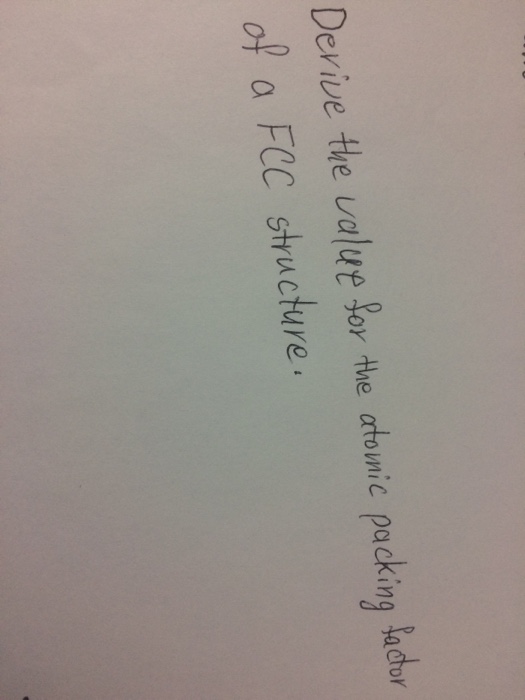 Derive the value for the atomic packing factor
of a FCC structure.